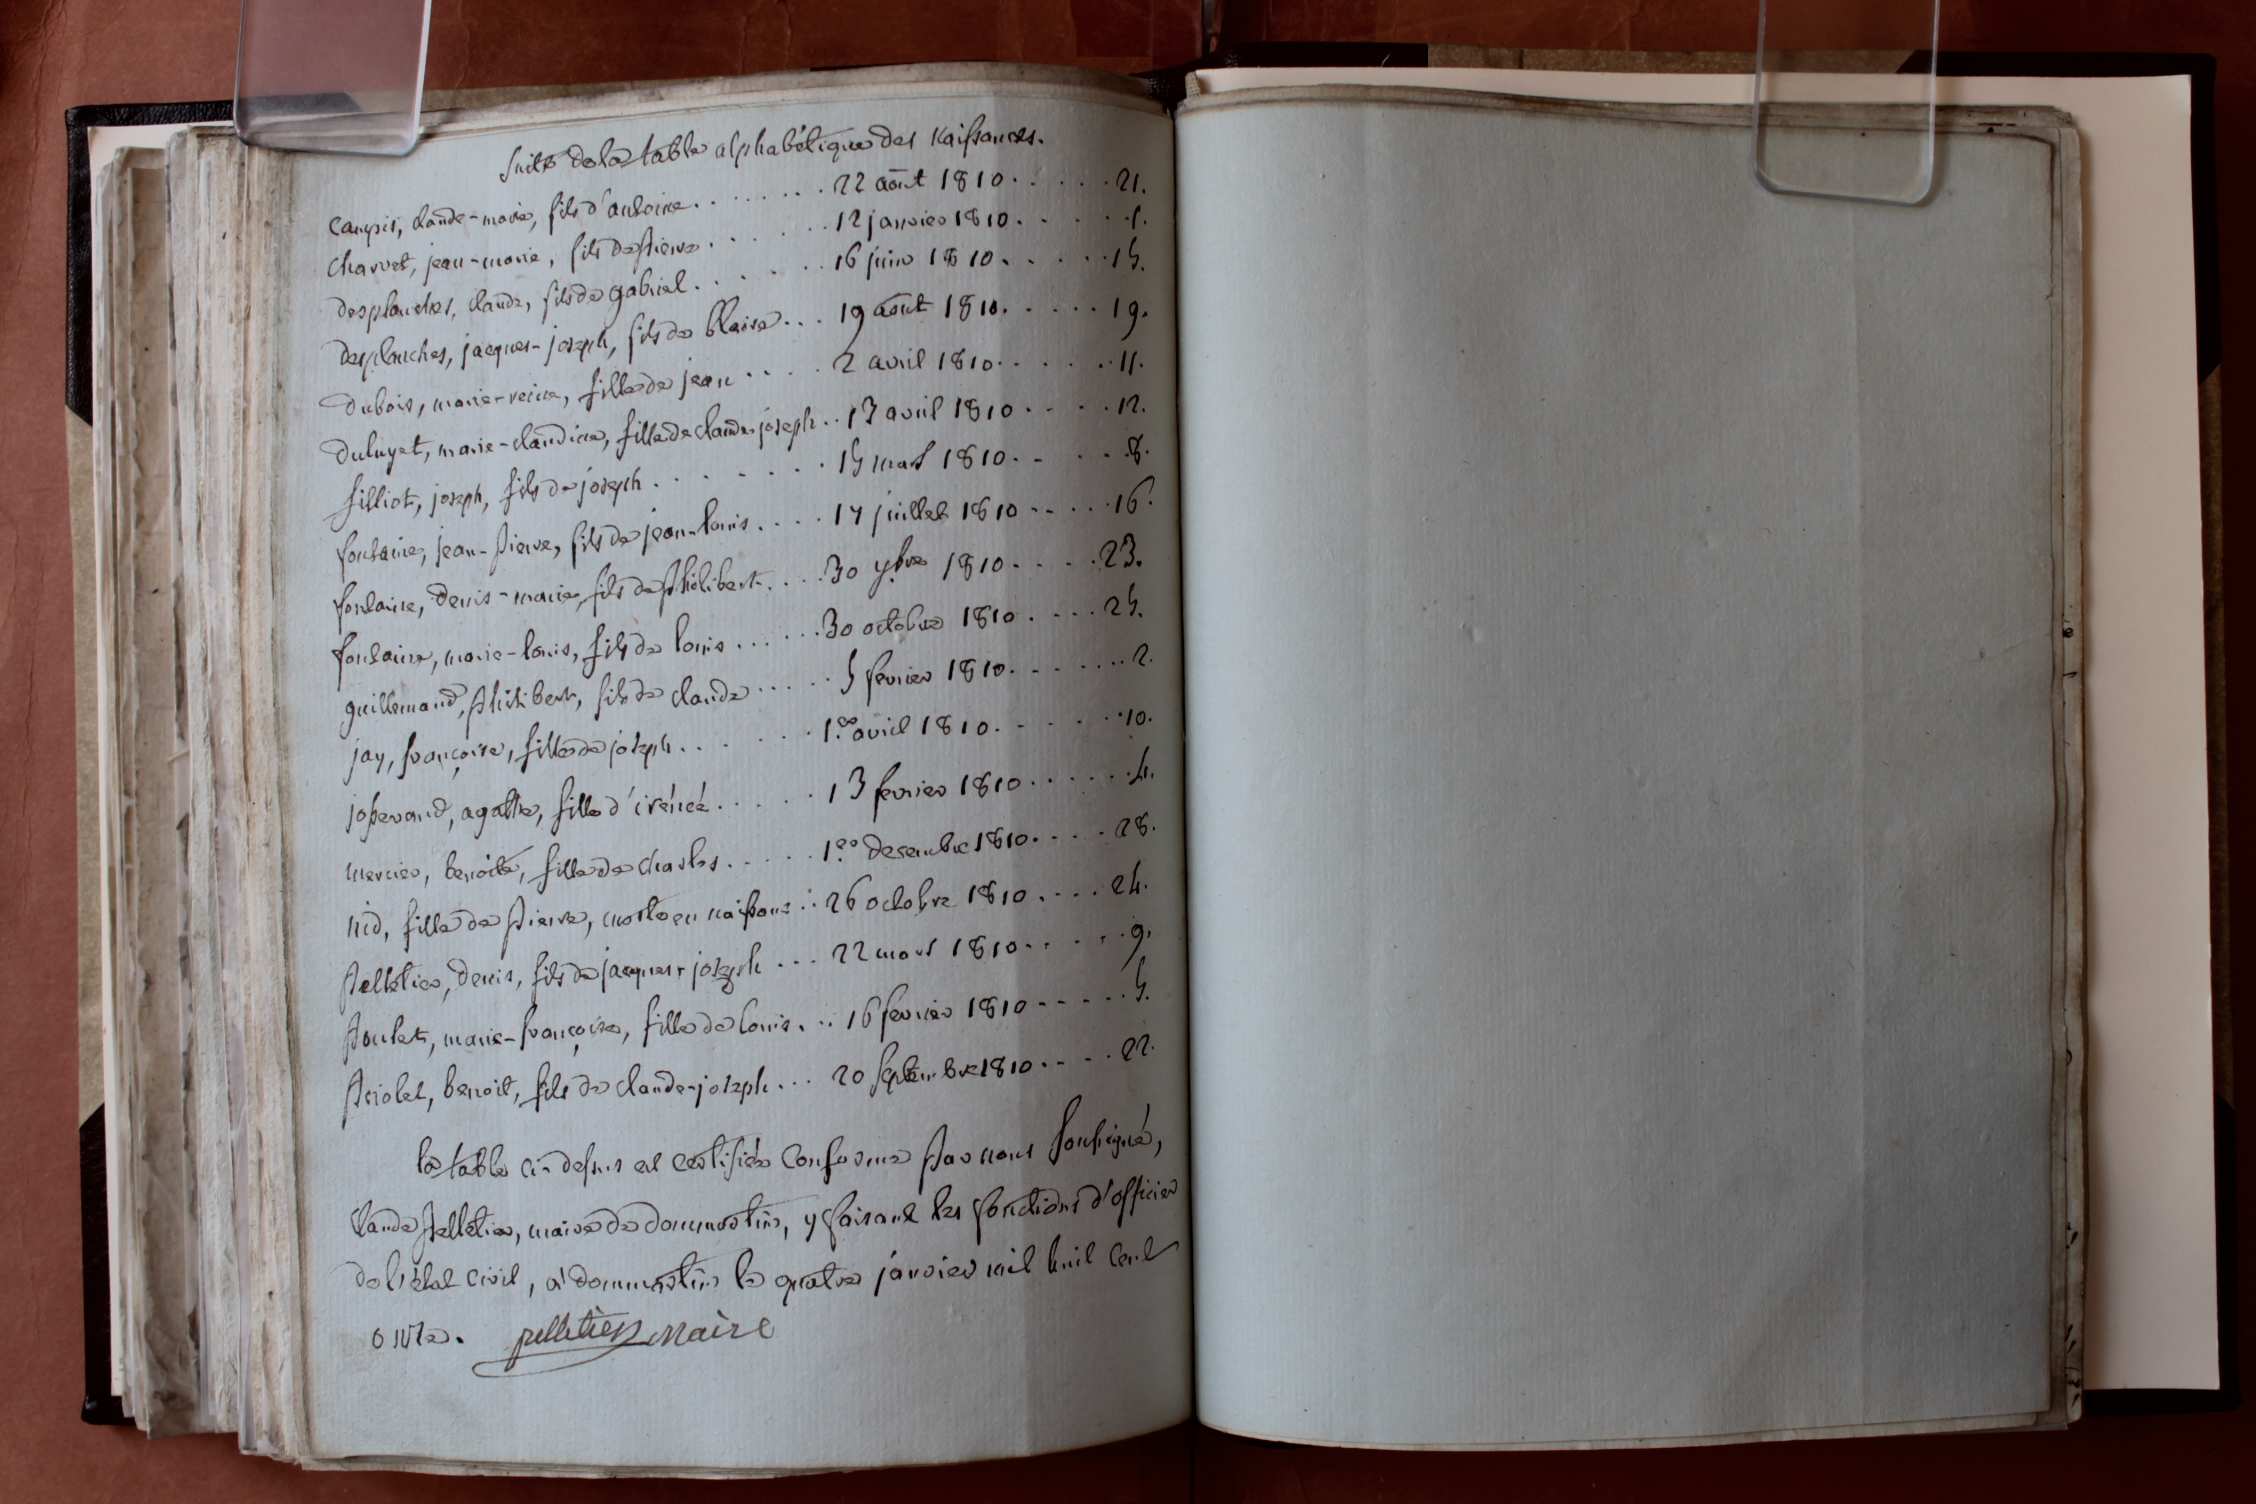 suite de la table alphabétique des naissances.
campis, claude-marie, fils d'antoine . . . . . . . 22 août 1810 . . . . . 21.
charvet, jean-marie, fils de pierre . . . . . . 12 janvier 1810 . . . . . 1.
desplanches, claude, fils de gabriel . . . . . . 16 juin 1810 . . . . . 15.
desplanches, jacques-joseph, fils de blaise . . . 19 août 1810 . . . . . 19.
dubois, marie-reine, fille de jean . . . . 2 avril 1810 . . . . . 11.
duluyet, marie-claudine, fille de claude joseph . . 13 avril 1810 . . . . 12.
filliot, joseph, fils de joseph . . . . . . . 15 mars 1810 . . . . 8.
fontaine, jean-pierre, fils de jean-louis . . . . 17 juillet 1810 . . . . 16.
fontaine, denis-marie, fils de philibert . . . 30 7bre 1810 . . . . 23.
fontaine, marie-louis, fils de louis . . . . . . 30 octobre 1810 . . . . 25.
guillemaud, philibert, fils de claude . . . . . 5 fevrier 1810 . . . . . . 2.
jay, françoise, fille de joseph . . . . . . 1.er avril 1810 . . . . . 10.
josserand, agathe, fille d'irénée . . . . . 13 fevrier 1810 . . . . . 4.
mercier, benoîte, fille de charles . . . . . 1.er decembre 1810 . . . . 28.
nid, fille de pierre, morte en naissant . . 26 octobre 1810 . . . . 24.
pelletier, denis, fils de jacques-joseph . . . 22 mars 1810 . . . . . 9.
poulet, marie-françoise, fille de louis . . . 16 fevrier 1810 . . . . . 5.
priolet, benoit, fils de claude-joseph . . . 20 septembre 1810 . . . . 22.
la table ci-dessus est certifiée conforme par nous soussigné,
claude pelletier, maire de dommartin, y faisant les fonctions d'officier
de l'état civil, à dommartin le quatre janvier mil huit cent
onze. pelletier maire